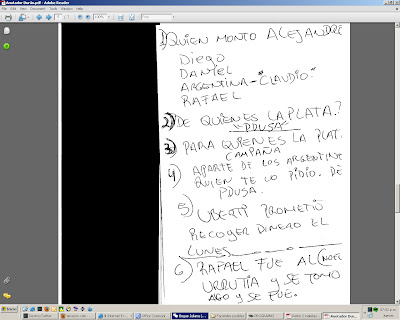 Anotador Durán.pdf - Adobe Reader
File Edit View Document Tools Window Help
1) QUIEN MONTO ALEJANDRE
Diego
DANIEL
ARGENTINA - "CLAUDIO"
RAFAEL
2) DE QUIEN ES LA PLATA.?
PDUSA
3) PARA QUIEN ES LA PLAT.
CAMPAÑA
4) APARTE DE LOS ARGENTINE
QUIEN TE LO PIDIO. DE
PDUSA.
5) UBERTI PROMETIO
RECOGER DINERO EL
LUNES
6) RAFAEL FUE AL
URRUTIA Y SE TOMO
AGO Y SE FUE.
Inicio